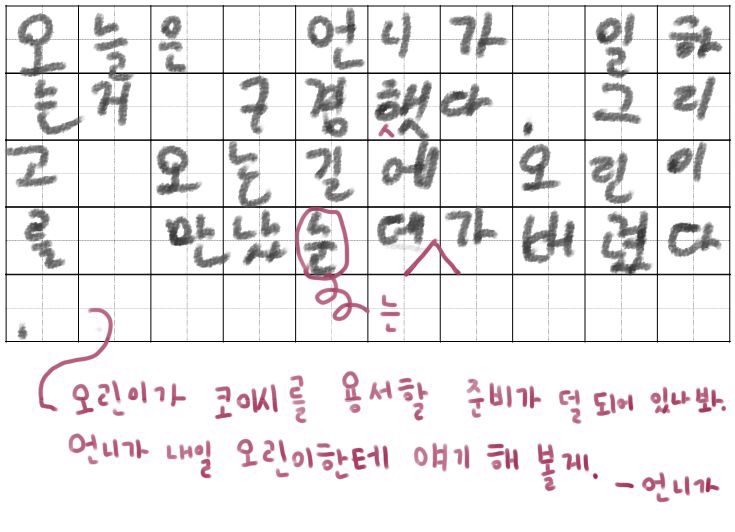 오늘은 언니가 일하
는거 구경햇다. 그리
고 오는길에 오린이
를 만났눈데가버렸다
.
는
오린이가 코이시를 용서할 준비가 덜 되어 있나봐.
언니가 내일 오린이한테 얘기 해 볼게.
-언니가